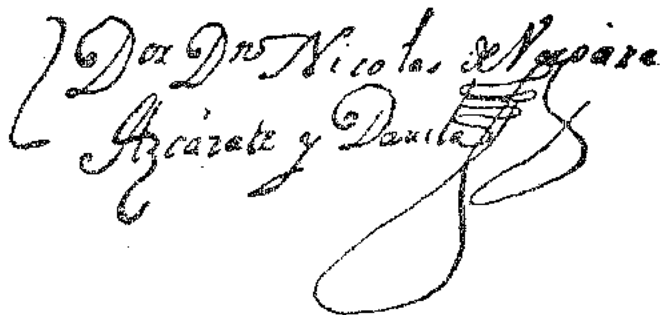 Dor Dn Nicolas de Vergara
Azcárate y Davila